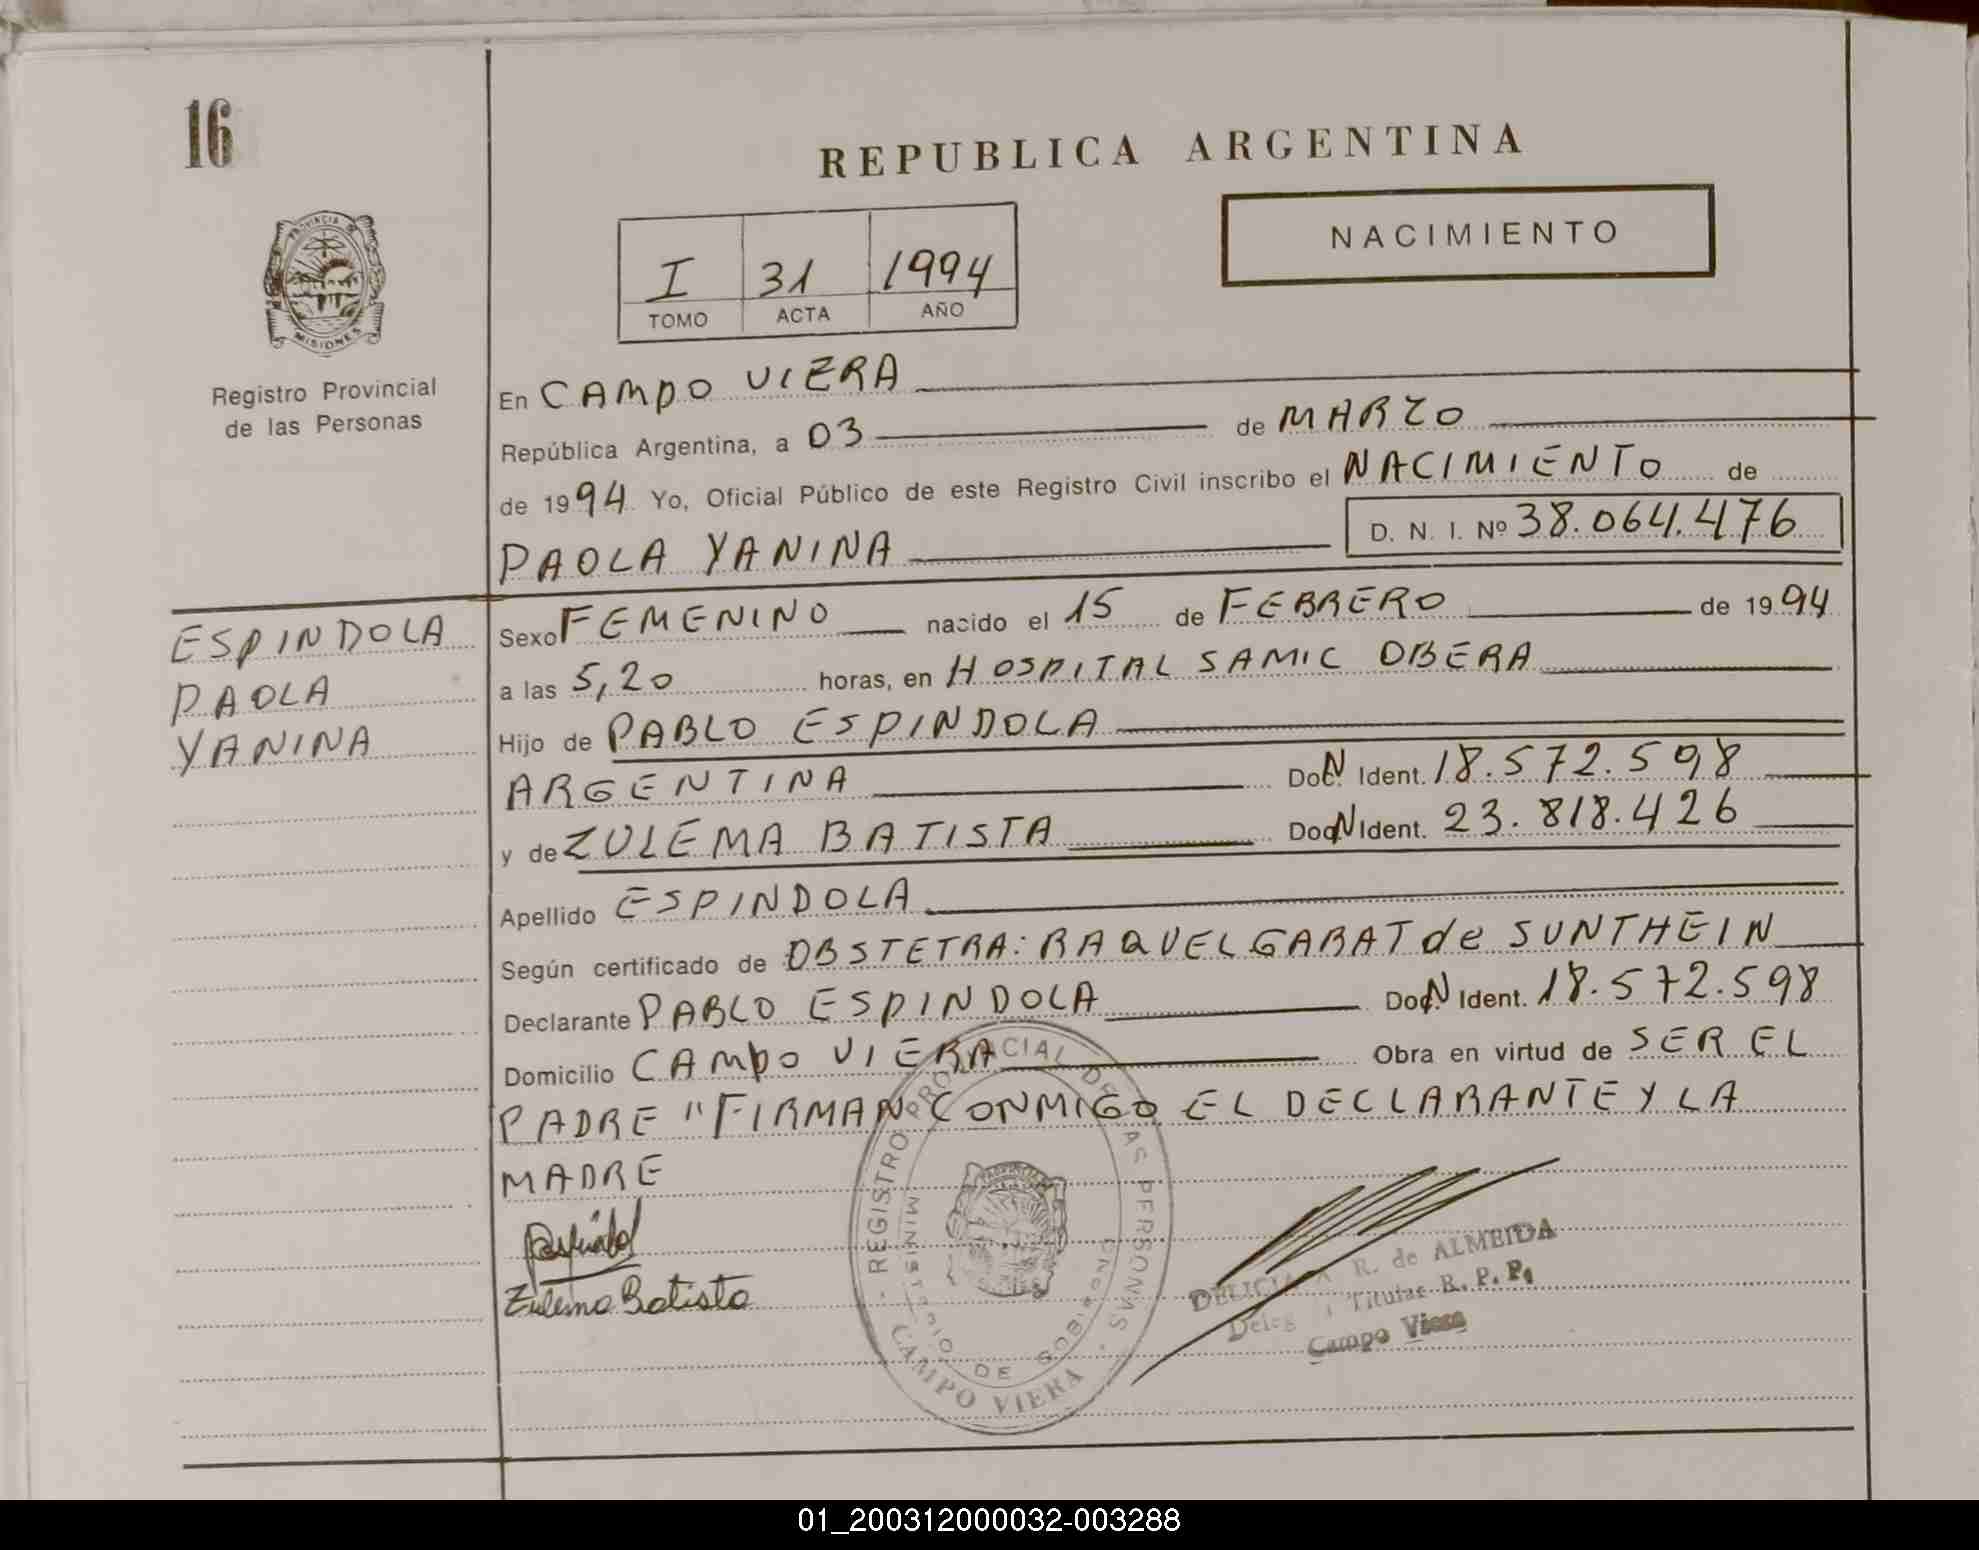 16
REPUBLICA ARGENTINA
NACIMIENTO
I 31 1994
TOMO ACTA AÑO
PROVINCIA DE
MISIONES
Registro Provincial
de las Personas
En CAMPO VIERA
República Argentina, a 03 de MARZO
de 1994 Yo, Oficial Público de este Registro Civil inscribo el NACIMIENTO de
PAOLA YANINA D. N. I. Nº 38.064.476
ESPINDOLA
PAOLA
YANINA
Sexo FEMENINO nacido el 15 de FEBRERO de 1994
a las 5,20 horas, en HOSPITAL SAMIC OBERA
Hijo de PABLO ESPINDOLA
ARGENTINA Doc. N Ident. 18.572.598
y de ZULEMA BATISTA Doc. N Ident. 23.818.426
Apellido ESPINDOLA
Según certificado de OBSTETRA: RAQUEL GARAT de SUNTHEIN
Declarante PABLO ESPINDOLA Doc. N Ident. 18.572.598
Domicilio CAMPO VIERA Obra en virtud de SER EL
PADRE "FIRMAN CONMIGO EL DECLARANTE Y LA
MADRE
Zulema Batista
REGISTRO PROVINCIAL DE LAS PERSONAS
MINISTERIO DE GOBIERNO
CAMPO VIERA
R. de ALMEIDA
Titular R. P. P.
Campo Viera
01_200312000032-003288